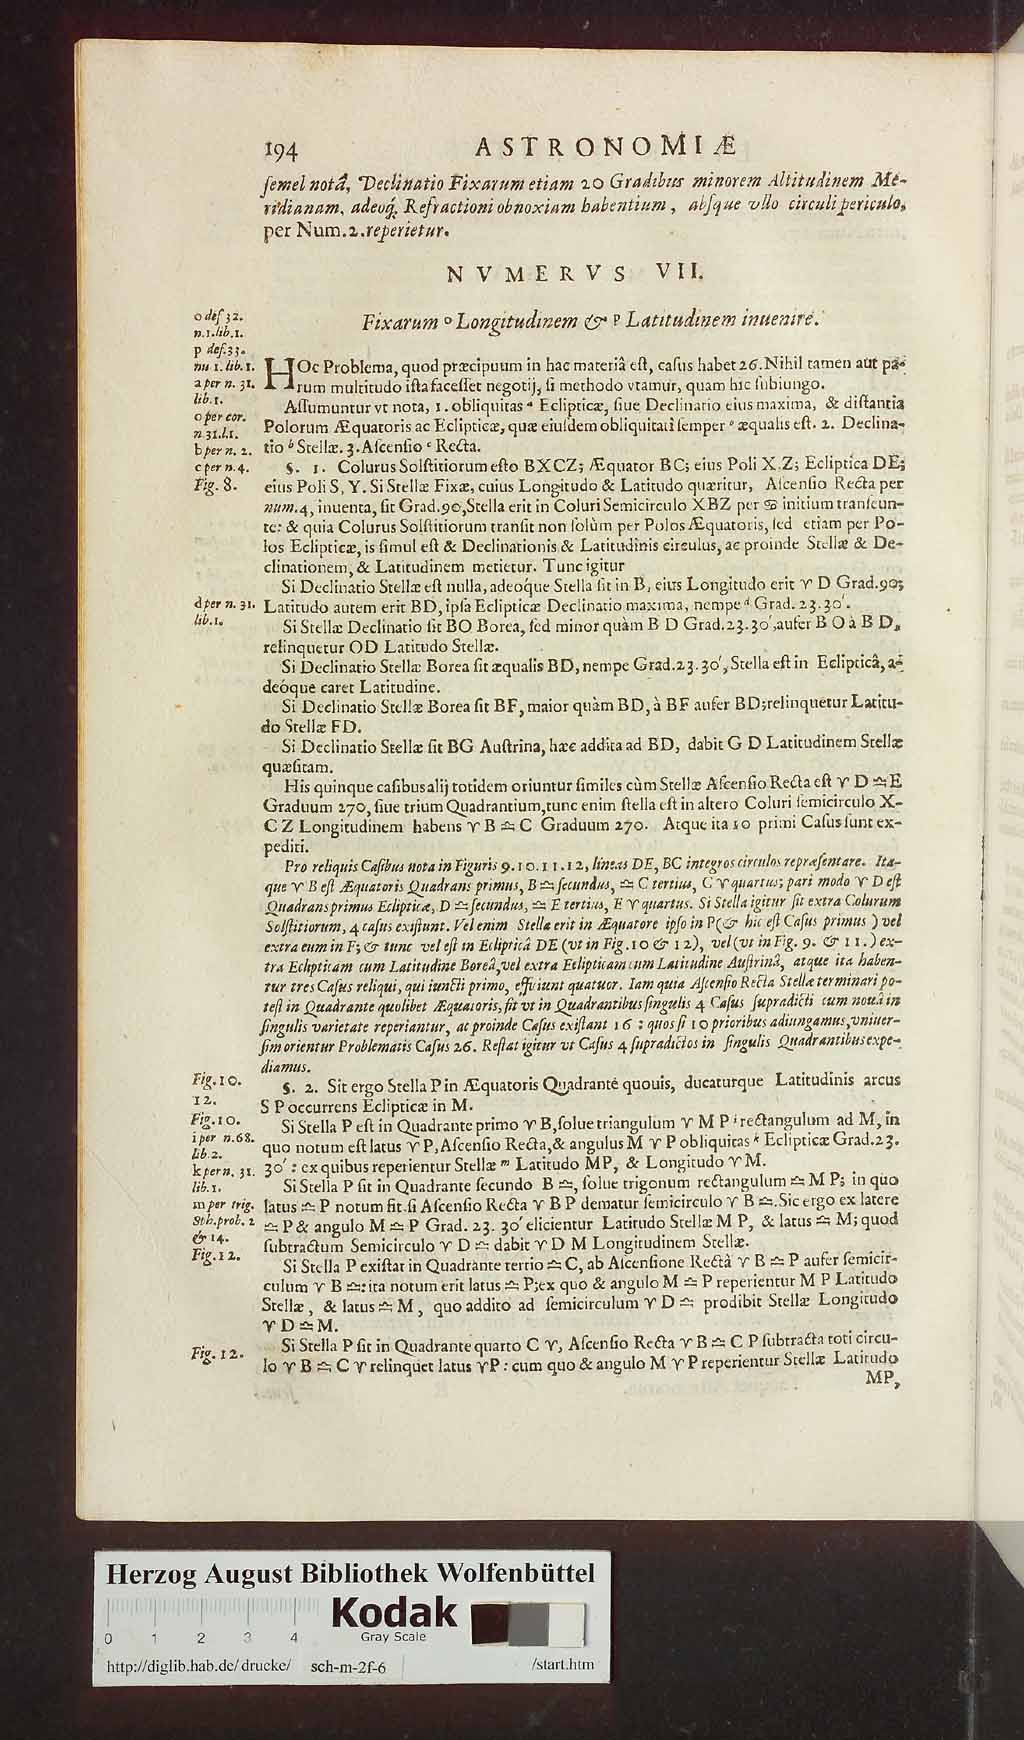 194 ASTRONOMIÆ
ſemel notâ, Declinatio Fixarum etiam 20 Gradibus minorem Altitudinem Me-
ridianam, adeoq́. Refractioni obnoxiam habentium, abſque vllo circuli periculo,
per Num.2.reperietur.
NVMERVS VII.
Fixarum o Longitudinem & p Latitudinem inuenire.
o def 32.
n.1.lib.1.
p def.33.
nu 1. lib.1.
a per n. 31.
lib.1.
o per cor.
n 31.l.1.
b per n. 2.
c per n.4.
Fig. 8.
HOc Problema, quod præcipuum in hac materiâ eſt, caſus habet 26. Nihil tamen aut pa-
rum multitudo iſta faceſſet negotij, ſi methodo vtamur, quam hic ſubiungo.
Aſſumuntur vt nota, 1. obliquitas a Eclipticæ, ſiue Declinatio eius maxima, & diſtantia
Polorum Æquatoris ac Eclipticæ, quæ eiuſdem obliquitati ſemper o æqualis eſt. 2. Declina-
tio b Stellæ. 3. Aſcenſio c Recta.
§. 1. Colurus Solſtitiorum eſto BXCZ; Æquator BC; eius Poli X.Z; Ecliptica DE;
eius Poli S, Y. Si Stellæ Fixæ, cuius Longitudo & Latitudo quæritur, Aſcenſio Recta per
num.4, inuenta, ſit Grad.90, Stella erit in Coluri Semicirculo XBZ per ♋ initium tranſeun-
te: & quia Colurus Solſtitiorum tranſit non ſolùm per Polos Æquatoris, ſed etiam per Po-
los Eclipticæ, is ſimul eſt & Declinationis & Latitudinis circulus, ac proinde Stellæ & De-
clinationem, & Latitudinem metietur. Tunc igitur
Si Declinatio Stellæ eſt nulla, adeoque Stella ſit in B, eius Longitudo erit ♈ D Grad.90;
d per n. 31.
lib.1.
Latitudo autem erit BD, ipſa Eclipticæ Declinatio maxima, nempe d Grad. 23.30′.
Si Stellæ Declinatio ſit BO Borea, ſed minor quàm B D Grad.23.30′, aufer B O à B D,
relinquetur OD Latitudo Stellæ.
Si Declinatio Stellæ Borea ſit æqualis BD, nempe Grad.23.30′, Stella eſt in Eclipticâ, a-
deóque caret Latitudine.
Si Declinatio Stellæ Borea ſit BF, maior quàm BD, à BF aufer BD; relinquetur Latitu-
do Stellæ FD.
Si Declinatio Stellæ ſit BG Auſtrina, hæc addita ad BD, dabit G D Latitudinem Stellæ
quæſitam.
His quinque caſibus alij totidem oriuntur ſimiles cùm Stellæ Aſcenſio Recta eſt ♈ D ♎ E
Graduum 270, ſiue trium Quadrantium, tunc enim ſtella eſt in altero Coluri ſemicirculo X-
C Z Longitudinem habens ♈ B ♎ C Graduum 270. Atque ita 10 primi Caſus ſunt ex-
pediti.
Pro reliquis Caſibus nota in Figuris 9.10.11.12, lineas DE, BC integros circulos repræſentare. Ita-
que ♈ B eſt Æquatoris Quadrans primus, B ♎ ſecundus, ♎ C tertius, C ♈ quartus; pari modo ♈ D eſt
Quadrans primus Eclipticæ, D ♎ ſecundus, ♎ E tertius, E ♈ quartus. Si Stella igitur ſit extra Colurum
Solſtitiorum, 4 caſus exiſtunt. Vel enim Stella erit in Æquatore ipſo in P(& hic eſt Caſus primus) vel
extra eum in F; & tunc vel eſt in Eclipticâ DE (vt in Fig.10 & 12), vel (vt in Fig. 9. & 11.) ex-
tra Eclipticam cum Latitudine Boreâ, vel extra Eclipticam cum Latitudine Auſtrinâ, atque ita haben-
tur tres Caſus reliqui, qui iuncti primo, efficiunt quatuor. Iam quia Aſcenſio Recta Stellæ terminari po-
teſt in Quadrante quolibet Æquatoris, fit vt in Quadrantibus ſingulis 4 Caſus ſupradicti cum nouâ in
ſingulis varietate reperiantur, ac proinde Caſus exiſtant 16 : quos ſi 10 prioribus adiungamus, vniuer-
ſim orientur Problematis Caſus 26. Reſtat igitur vt Caſus 4 ſupradictos in ſingulis Quadrantibus expe-
diamus.
Fig.10.
12.
Fig.10.
i per n.68.
lib.2.
k per n. 31.
lib.1.
m per trig.
Sph.prob.2
& 14.
Fig.12.
§. 2. Sit ergo Stella P in Æquatoris Quadrante quouis, ducaturque Latitudinis arcus
S P occurrens Eclipticæ in M.
Si Stella P eſt in Quadrante primo ♈ B, ſolue triangulum ♈ M P i rectangulum ad M, in
quo notum eſt latus ♈ P, Aſcenſio Recta, & angulus M ♈ P obliquitas k Eclipticæ Grad.23.
30′ : ex quibus reperientur Stellæ m Latitudo MP, & Longitudo ♈ M.
Si Stella P ſit in Quadrante ſecundo B ♎, ſolue trigonum rectangulum ♎ M P; in quo
latus ♎ P notum fit. ſi Aſcenſio Recta ♈ B P dematur ſemicirculo ♈ B ♎. Sic ergo ex latere
♎ P & angulo M ♎ P Grad. 23. 30′ elicientur Latitudo Stellæ M P, & latus ♎ M; quod
ſubtractum Semicirculo ♈ D ♎ dabit ♈ D M Longitudinem Stellæ.
Si Stella P exiſtat in Quadrante tertio ♎ C, ab Aſcenſione Rectâ ♈ B ♎ P aufer ſemicir-
culum ♈ B ♎: ita notum erit latus ♎ P; ex quo & angulo M ♎ P reperientur M P Latitudo
Stellæ, & latus ♎ M, quo addito ad ſemicirculum ♈ D ♎ prodibit Stellæ Longitudo
♈ D ♎ M.
Fig. 12.
Si Stella P ſit in Quadrante quarto C ♈, Aſcenſio Recta ♈ B ♎ C P ſubtracta toti circu-
lo ♈ B ♎ C ♈ relinquet latus ♈P : cum quo & angulo M ♈ P reperientur Stellæ Latitudo
MP,
Herzog August Bibliothek Wolfenbüttel
Kodak
Gray Scale
0 1 2 3 4
http://diglib.hab.de/drucke/ sch-m-2f-6 /start.htm